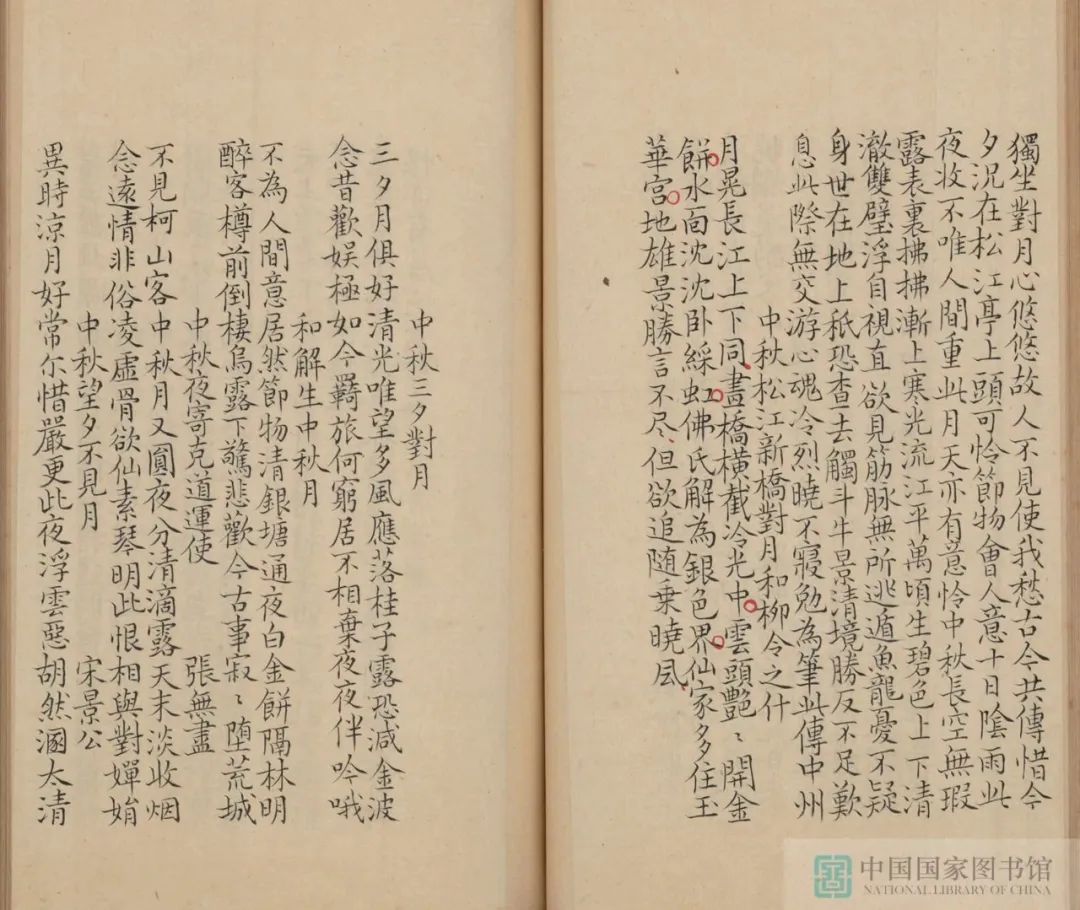 獨坐對月心悠悠故人不見使我愁古今共傳惜今
夕況在松江亭上頭可怜節物會人意十日陰雨此
夜收不唯人間重此月天亦有意怜中秋長空無瑕
露表裏拂拂漸上寒光流江平萬頃生碧色上下清
澈雙璧浮自視直欲見筋脉無所逃遁魚龍憂不疑
身世在地上秖恐查去觸斗牛景清境勝反不足歎
息此際無交游心魂冷烈曉不寢勉為筆此傳中州
中秋松江新橋對月和柳令之什
月晃長江上下同畫橋橫截冷光中雲頭艷〻開金
餅水面沈沈卧綵虹佛氏解為銀色界仙家多住玉
華宮地雄景勝言不尽但欲追随乗曉風
中秋三夕對月
三夕月俱好清光唯望多風應落桂子露恐减金波
念昔歡娱極如今羇旅何窮居不相棄夜夜伴吟哦
和解生中秋月
不為人間意居然節物清銀塘通夜白金餅隔林明
醉客樽前倒棲烏露下驚悲歡今古事寂〻堕荒城
中秋夜寄克道運使 張無盡
不見柯山客中秋月又圓夜分清滴露天末淡收烟
念遠情非俗凌虛骨欲仙素琴明此恨相與對嬋娟
中秋望夕不見月 宋景公
異時涼月好常尔惜嚴更此夜浮雲惡胡然溷太清
中国国家图书馆
NATIONAL LIBRARY OF CHINA